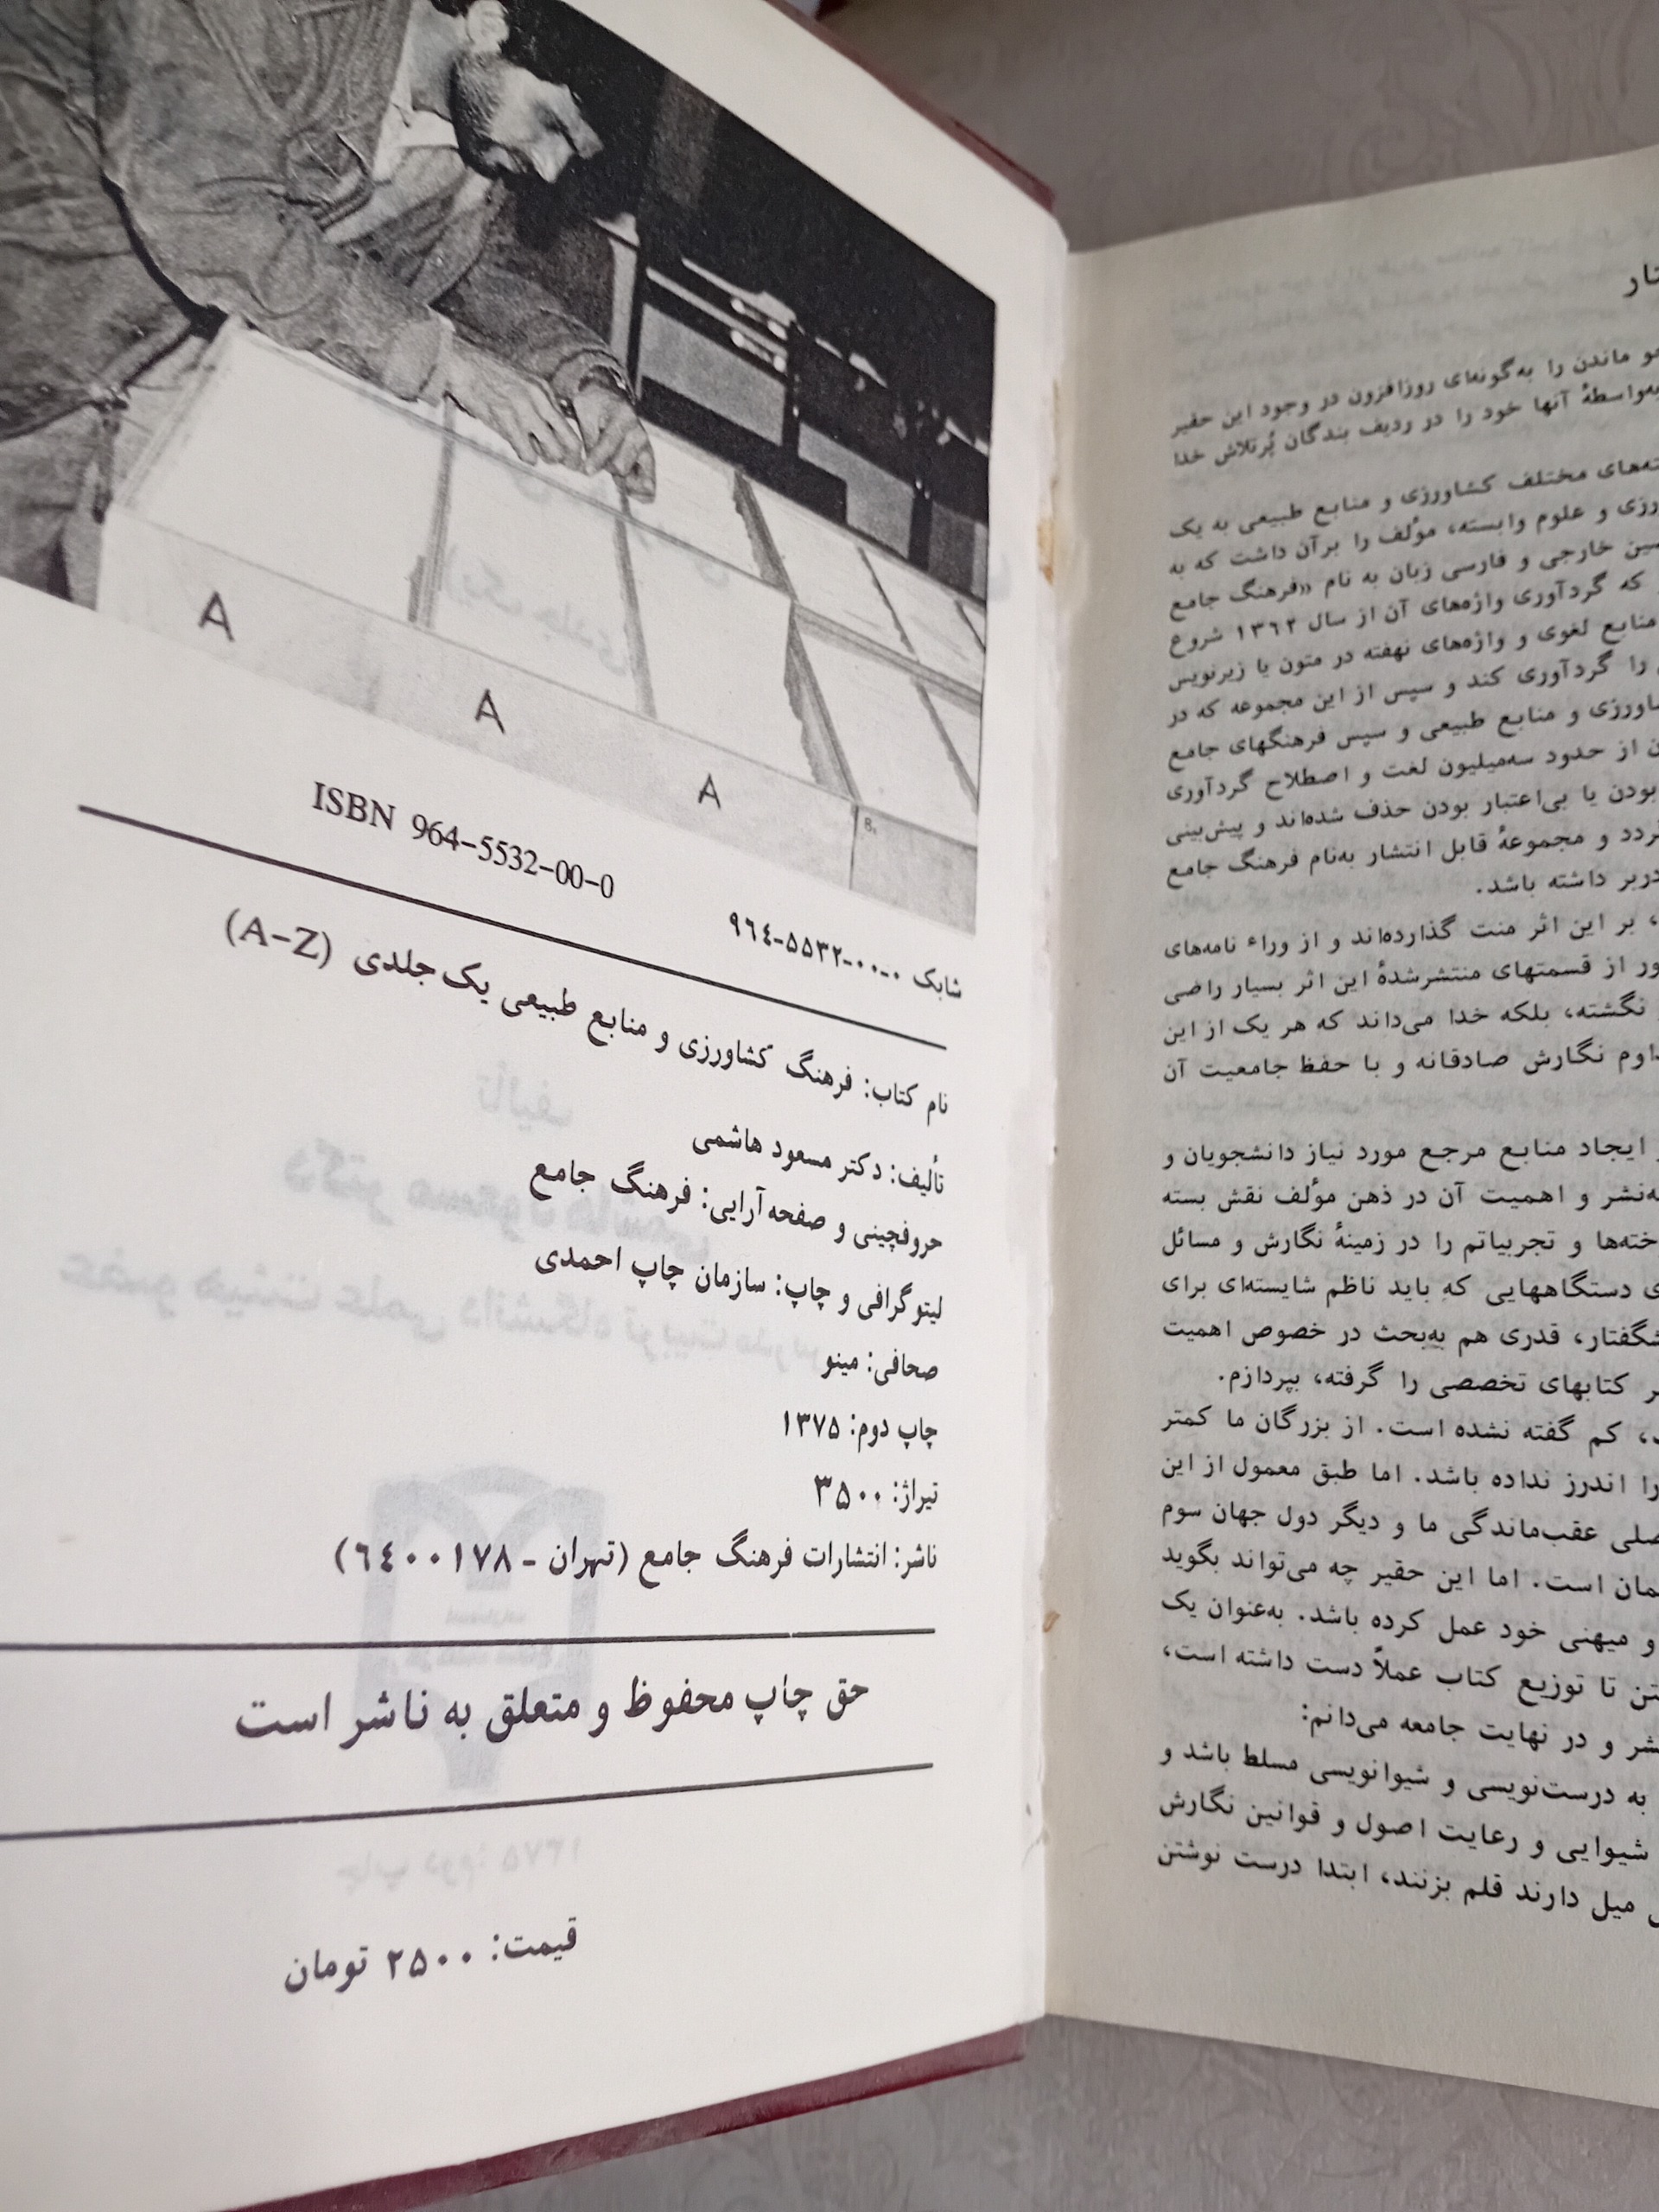 A
A
A
B.
ISBN 964-5532-00-0
شابک ۰-۰۰-۵۵۳۲-۹۶۴
نام کتاب: فرهنگ کشاورزی و منابع طبیعی یک جلدی (A-Z)
تألیف: دکتر مسعود هاشمی
حروفچینی و صفحه آرایی: فرهنگ جامع
لیتوگرافی و چاپ: سازمان چاپ احمدی
صحافی: مینو
چاپ دوم: ۱۳۷۵
تیراژ: ۳۵۰۰
ناشر: انتشارات فرهنگ جامع (تهران - ۶۴۰۰۱۷۸)
حق چاپ محفوظ و متعلق به ناشر است
قیمت: ۲۵۰۰ تومان
ماندن را به‌گونه‌ای روزافزون در وجود این حقیر
به‌واسطهٔ آنها خود را در ردیف بندگان پُرتلاش خدا
مختلف کشاورزی و منابع طبیعی به یک
و علوم وابسته، مؤلف را برآن داشت که به
خارجی و فارسی زبان به نام «فرهنگ جامع
که گردآوری واژه‌های آن از سال ۱۳۶۲ شروع
منابع لغوی و واژه‌های نهفته در متون یا زیرنویس
را گردآوری کند و سپس از این مجموعه که در
و منابع طبیعی و سپس فرهنگهای جامع
از حدود سه‌میلیون لغت و اصطلاح گردآوری
بودن یا بی‌اعتبار بودن حذف شده‌اند و پیش‌بینی
و مجموعهٔ قابل انتشار به‌نام فرهنگ جامع
دربر داشته باشد.
، بر این اثر منت گذارده‌اند و از وراء نامه‌های
از قسمتهای منتشرشدهٔ این اثر بسیار راضی
نگشته، بلکه خدا می‌داند که هر یک از این
نگارش صادقانه و با حفظ جامعیت آن
ایجاد منابع مرجع مورد نیاز دانشجویان و
و اهمیت آن در ذهن مؤلف نقش بسته
و تجربیاتم را در زمینهٔ نگارش و مسائل
دستگاههایی که باید ناظم شایسته‌ای برای
قدری هم به‌بحث در خصوص اهمیت
کتابهای تخصصی را گرفته، بپردازم.
، کم گفته نشده است. از بزرگان ما کمتر
را اندرز نداده باشد. اما طبق معمول از این
عقب‌ماندگی ما و دیگر دول جهان سوم
است. اما این حقیر چه می‌تواند بگوید
و میهنی خود عمل کرده باشد. به‌عنوان یک
تا توزیع کتاب عملاً دست داشته است،
و در نهایت جامعه می‌دانم:
به درست‌نویسی و شیوانویسی مسلط باشد و
شیوایی و رعایت اصول و قوانین نگارش
میل دارند قلم بزنند، ابتدا درست نوشتن